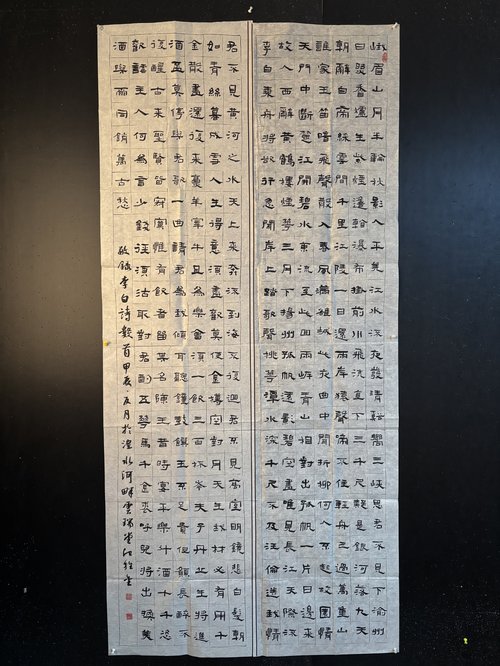 峨眉山月半輪秋影入平羌江水流夜發清谿嚮三峽思君不見下渝州
日照香爐生紫煙遙看瀑布掛前川飛流直下三千尺疑是銀河落九天
朝辭白帝綵雲間千里江陵一日還兩岸猿聲啼不住輕舟已過萬重山
誰家玉笛暗飛聲散入春風滿雒城此夜曲中聞折柳何人不起故園情
天門中斷楚江開碧水東流至此回兩岸青山相對出孤帆一片日邊來
故人西辭黃鶴樓煙花三月下揚州孤帆遠影碧空盡唯見長江天際流
李白乘舟將欲行忽聞岸上踏歌聲桃花潭水深千尺不及汪倫送我情
君不見黃河之水天上來奔流到海不復迴君不見高堂明鏡悲白髮朝
如青絲暮成雪人生得意須盡歡莫使金樽空對月天生我材必有用千
金散盡還復來烹羊宰牛且為樂會須一飲三百杯岑夫子丹丘生將進
酒盃莫停與君歌一曲請君為我傾耳聽鐘鼓饌玉不足貴但願長醉不
復醒古來聖賢皆寂寞惟有飲者留其名陳王昔時宴平樂斗酒十千恣
歡謔主人何為言少錢徑須沽取對君酌五花馬千金裘呼兒將出換美
酒與爾同銷萬古愁
敬錄李白詩數首甲辰六月於湟水河畔雲瑞堂江